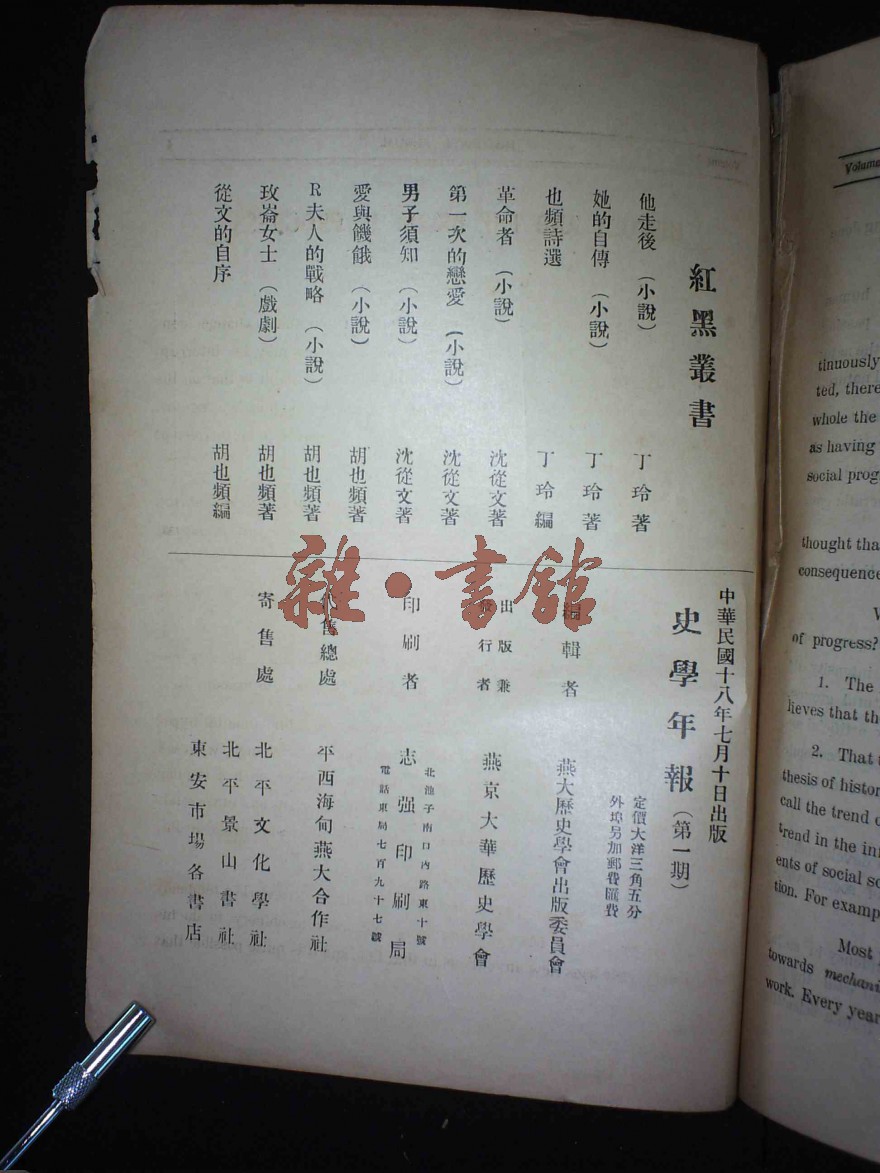 紅黑叢書
他走後 (小說) 丁玲著
她的自傳 (小說) 丁玲著
也頻詩選 丁玲編
革命者 (小說) 沈從文著
第一次的戀愛 (小說) 沈從文著
男子須知 (小說) 沈從文著
愛與饑餓 (小說) 胡也頻著
R夫人的戰略 (小說) 胡也頻著
玫崙女士 (戲劇) 胡也頻著
從文的自序 胡也頻編
中華民國十八年七月十日出版
史學年報 (第一期)
定價大洋三角五分
外埠另加郵費匯費
編輯者 燕大歷史學會出版委員會
出版兼
發行者 燕京大華歷史學會
印刷者 志强印刷局
北池子南口內路東十號
電話東局七百九十七號
代售總處 平西海甸燕大合作社
寄售處 北平文化學社
北平景山書社
東安市場各書店
雜·書館
Volume
tinuously
ted, there
whole the
as having
social prog
thought tha
consequence
of progress?
1. The
lieves that th
2. That
thesis of histor
call the trend
trend in the in
ents of social so
tion. For examp
Most
towards mechani
work. Every year